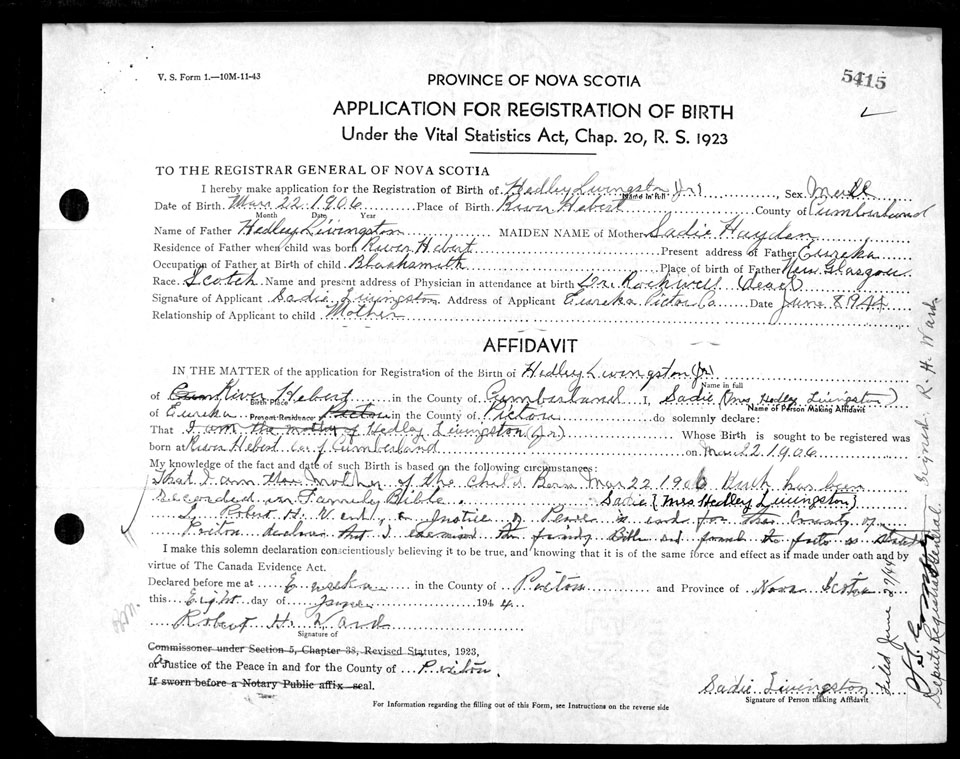 V. S. Form 1.—10M-11-43
5415
PROVINCE OF NOVA SCOTIA
APPLICATION FOR REGISTRATION OF BIRTH
Under the Vital Statistics Act, Chap. 20, R. S. 1923
TO THE REGISTRAR GENERAL OF NOVA SCOTIA
I hereby make application for the Registration of Birth of Hedley Livingston (Jr) Sex Male
Name in full
Date of Birth Mar 22 1906 Place of Birth River Hebert County of Cumberland
Month Date Year
Name of Father Hedley Livingston MAIDEN NAME of Mother Sadie Hayden
Residence of Father when child was born River Hebert Present address of Father Eureka
Occupation of Father at Birth of child Blacksmith Place of birth of Father New Glasgow
Race Scotch Name and present address of Physician in attendance at birth Dr. Rockwell Dead
Signature of Applicant Sadie Livingston Address of Applicant Eureka Pictou Co Date June 8 1944
Relationship of Applicant to child Mother
AFFIDAVIT
IN THE MATTER of the application for Registration of the Birth of Hedley Livingston (Jr)
Name in full
of River Hebert in the County of Cumberland I, Sadie (Mrs Hedley Livingston)
Birth Place Name of Person Making Affidavit
of Eureka Pictou in the County of Pictou do solemnly declare:
Present Residence
That I am the mother of Hedley Livingston (Jr) Whose Birth is sought to be registered was
born at River Hebert Cumberland on Mar 22 1906
My knowledge of the fact and date of such Birth is based on the following circumstances:
That I am the Mother of the Child Born Mar 22 1906 Which has been
recorded in Family Bible. Sadie (Mrs Hedley Livingston)
I, Robert H. Ward, a Justice of Peace in and for the County of
Pictou declare that I examined the family Bible and found the facts as stated
I make this solemn declaration conscientiously believing it to be true, and knowing that it is of the same force and effect as if made under oath and by
virtue of The Canada Evidence Act.
Declared before me at Eureka in the County of Pictou and Province of Nova Scotia
this Eight day of June 1944
Robert H. Ward
Signature of
Commissioner under Section 5, Chapter 38, Revised Statutes, 1923,
or Justice of the Peace in and for the County of Pictou.
If sworn before a Notary Public affix seal.
Sadie Livingston
Signature of Person making Affidavit
For Information regarding the filling out of this Form, see Instructions on the reverse side
Signed R. H. Ward
Filed June 27/44
Deputy Registrar General.